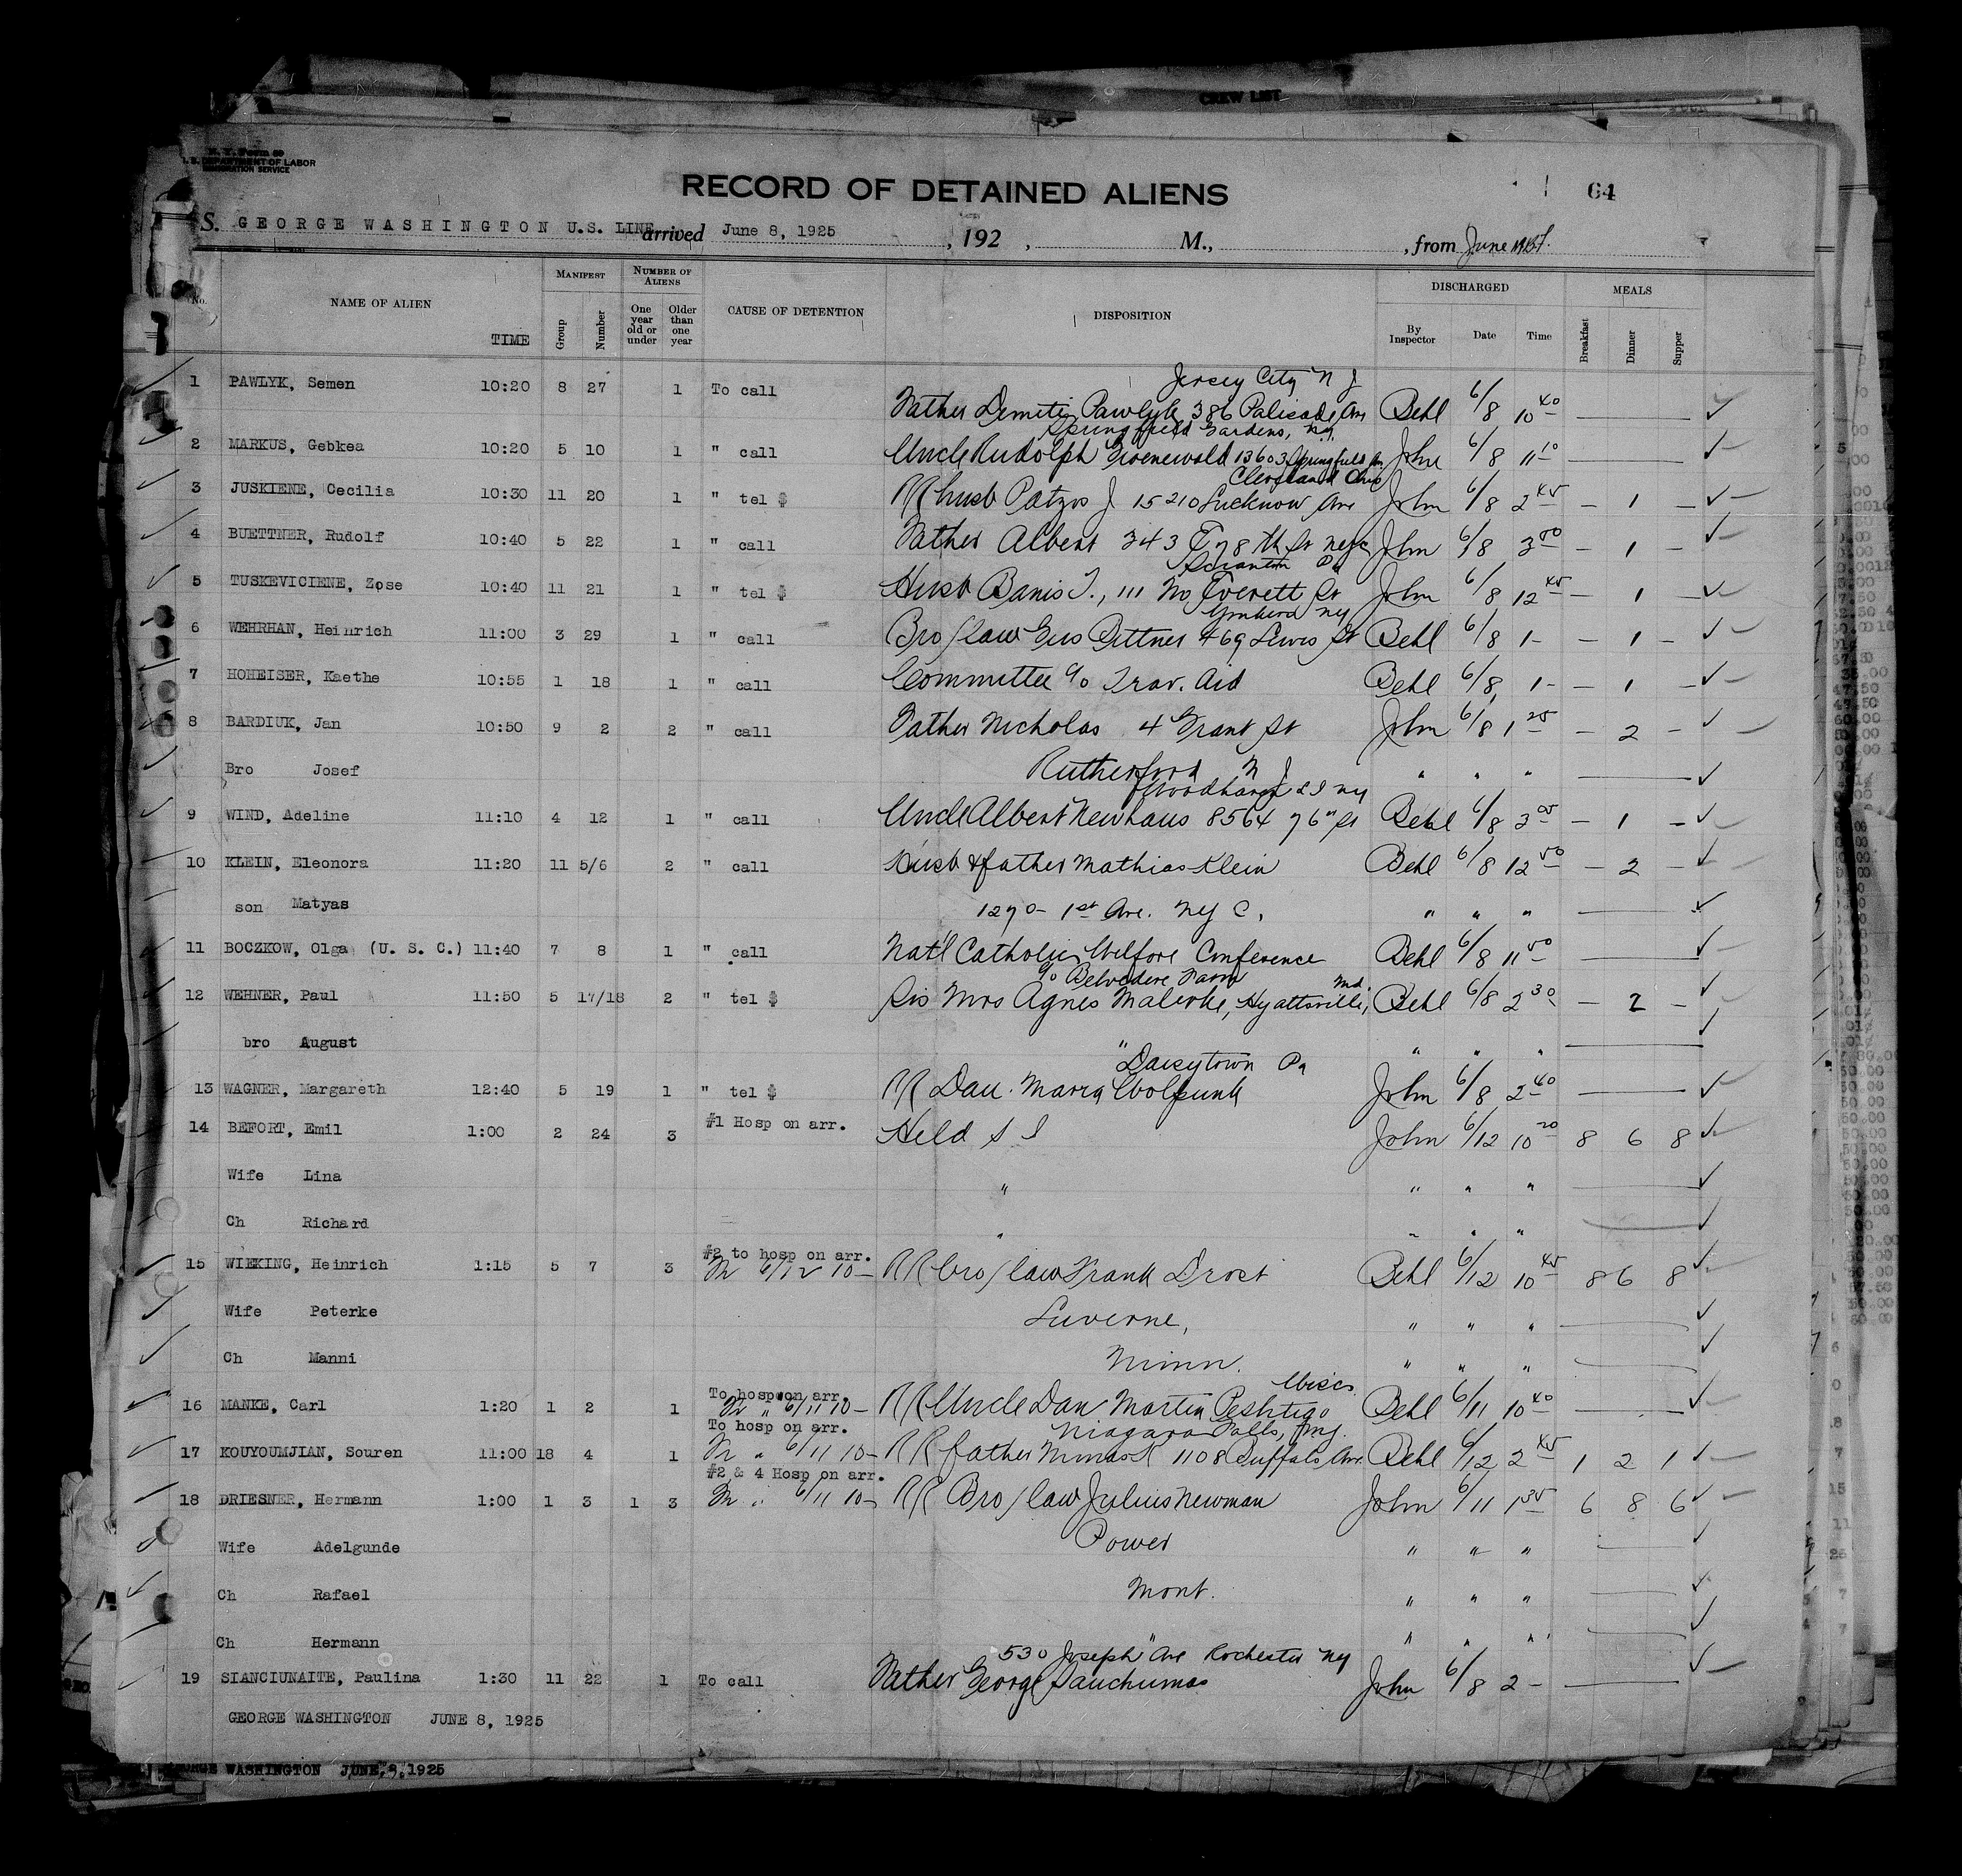 CREW LIST
N. Y. Form 50
U. S. DEPARTMENT OF LABOR
IMMIGRATION SERVICE
RECORD OF DETAINED ALIENS 64
S. GEORGE WASHINGTON U.S. LINE arrived June 8, 1925, 192 , M., , from June
No. NAME OF ALIEN TIME MANIFEST Group Number NUMBER OF ALIENS One year old or under Older than one year CAUSE OF DETENTION DISPOSITION DISCHARGED By Inspector Date Time MEALS Breakfast Dinner Supper
Jersey City N J
1 PAWLYK, Semen 10:20 8 27 1 To call Father Demeti Pawlyk 386 Palisade Ave Behl 6/8 10 40
Springfield Gardens, N.Y.
2 MARKUS, Gebkea 10:20 5 10 1 " call Uncle Rudolph Groenewold 13603 Springfield Av John 6/8 11 10
Cleveland Ohio
3 JUSKIENE, Cecilia 10:30 11 20 1 " tel $ RR husb Patzos J 15210 Lucknow Ave John 6/8 2 45 – 1 –
4 BUETTNER, Rudolf 10:40 5 22 1 " call Father Albert 343 E 78 th St nyc John 6/8 3 00 – 1 –
Scranton Pa
5 TUSKEVICIENE, Zose 10:40 11 21 1 " tel $ Husb Banis T., 111 No Everett St John 6/8 12 45 – 1 –
NY
6 WEHRHAN, Heinrich 11:00 3 29 1 " call Bro/law Gus Bittner 469 Lewis St Behl 6/8 1– – 1 –
7 HOHEISER, Kaethe 10:55 1 18 1 " call Committee c/o Trav. Aid Behl 6/8 1– – 1 –
8 BARDIUK, Jan 10:50 9 2 2 " call Father Nicholas 4 Grant St John 6/8 1 25 – 2 –
Bro Josef Rutherford N J " " "
Woodhaven L I NY
9 WIND, Adeline 11:10 4 12 1 " call Uncle Albert Newhaus 8564 76" St Behl 6/8 3 05 – 1 –
10 KLEIN, Eleonora 11:20 11 5/6 2 " call Husb & father Mathias Klein Behl 6/8 12 50 – 2 –
son Matyas 1270 – 1st Ave. NY C, " " "
11 BOCZKOW, Olga (U. S. C.) 11:40 7 8 1 " call Nat'l Catholic Welfare Conference Behl 6/8 11 50
c/o Belvedere Farm Md.
12 WEHNER, Paul 11:50 5 17/18 2 " tel $ Sis Mrs Agnes Malerke, Hyattsville, Behl 6/8 2 30 – 2 –
bro August " " " "
Daisytown Pa
13 WAGNER, Margareth 12:40 5 19 1 " tel $ RR Dau. Maria Wolfpunk John 6/8 2 40
14 BEFORT, Emil 1:00 2 24 3 #1 Hosp on arr. Held S I John 6/12 10 20 8 6 8
Wife Lina " " " "
Ch Richard " " " "
#2 to hosp on arr.
15 WIEKING, Heinrich 1:15 5 7 3 6/12 10– RR bro/law Frank Drost Behl 6/12 10 45 8 6 8
Wife Peterke Luverne, " " "
Ch Manni Minn. " " "
To hosp on arr. Wisc
16 MANKE, Carl 1:20 1 2 1 " 6/11 10– RR Uncle Dan Martin Peshtigo Behl 6/11 10 40
To hosp on arr. Niagara Falls, NY.
17 KOUYOUMJIAN, Souren 11:00 18 4 1 " 6/11 10– RR father Minas K 1108 Buffalo Ave. Behl 6/12 2 45 1 2 1
#2 & 4 Hosp on arr.
18 DRIESNER, Hermann 1:00 1 3 1 3 " 6/11 10– RR Bro/law Julius Newman John 6/11 1 35 6 8 6
Wife Adelgunde Power " " "
Ch Rafael Mont. " " "
Ch Hermann " " " "
530 Joseph Ave Rochester NY
19 SIANCIUNAITE, Paulina 1:30 11 22 1 To call Father George Sauchumas John 6/8 2 –
GEORGE WASHINGTON JUNE 8, 1925
GEORGE WASHINGTON JUNE 8, 1925